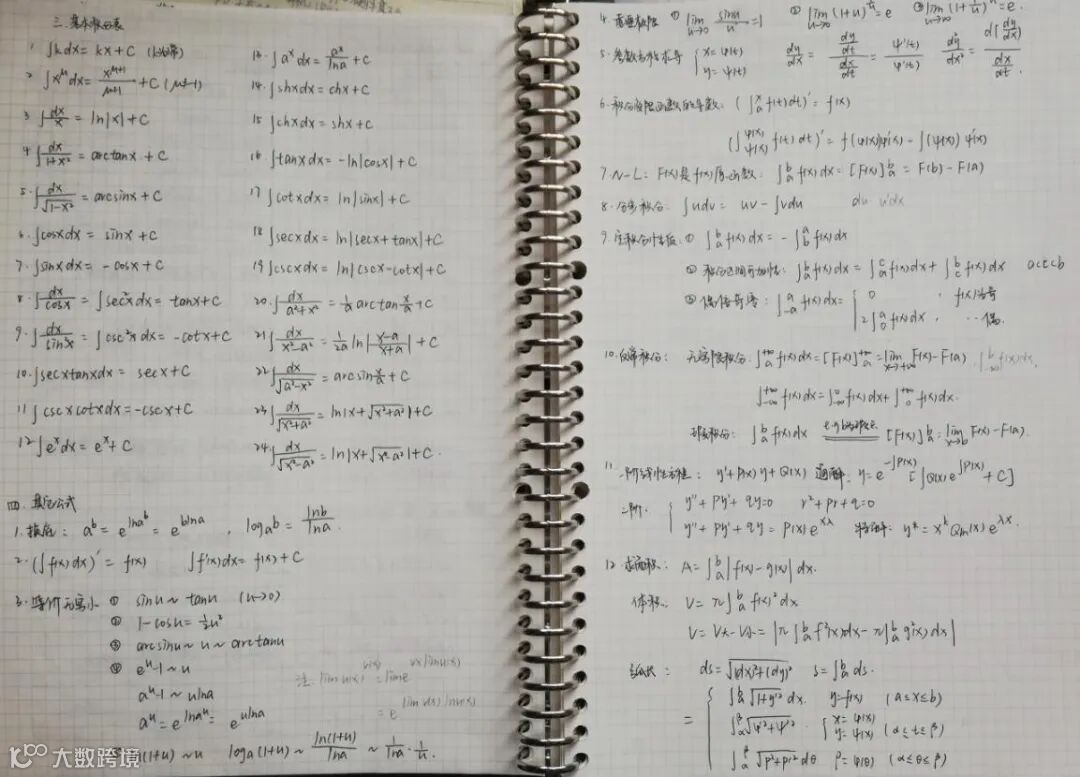 三.基本积分表
1. ∫kdx = kx + C (k为常)
2. ∫x^μ dx = x^(μ+1)/(μ+1) + C (μ≠-1)
3. ∫dx/x = ln|x| + C
4. ∫dx/(1+x²) = arctanx + C
5. ∫dx/√(1-x²) = arcsinx + C
6. ∫cosxdx = sinx + C
7. ∫sinxdx = -cosx + C
8. ∫dx/cos²x = ∫sec²xdx = tanx + C
9. ∫dx/sin²x = ∫csc²xdx = -cotx + C
10. ∫secxtanxdx = secx + C
11. ∫cscxcotxdx = -cscx + C
12. ∫e^x dx = e^x + C
13. ∫a^x dx = a^x/lna + C
14. ∫shxdx = chx + C
15. ∫chxdx = shx + C
16. ∫tanxdx = -ln|cosx| + C
17. ∫cotxdx = ln|sinx| + C
18. ∫secxdx = ln|secx+tanx| + C
19. ∫cscxdx = ln|cscx-cotx| + C
20. ∫dx/(a²+x²) = 1/a arctan x/a + C
21. ∫dx/(x²-a²) = 1/2a ln|(x-a)/(x+a)| + C
22. ∫dx/√(a²-x²) = arcsin x/a + C
23. ∫dx/√(x²+a²) = ln|x+√(x²+a²)| + C
24. ∫dx/√(x²-a²) = ln|x+√(x²-a²)| + C.
四.其它公式
1. 换底: a^b = e^(lna^b) = e^(blna) , log_a b = lnb/lna.
2. (∫f(x)dx)' = f(x) ∫f'(x)dx = f(x) + C
3. 等价无穷小 ① sinu ~ tanu (u→0)
② 1-cosu = ½u²
③ arcsinu ~ u ~ arctanu
④ e^u-1 ~ u
a^u-1 ~ ulna
a^u = e^(lna^u) = e^(ulna)
ln(1+u) ~ u log_a(1+u) ~ ln(1+u)/lna ~ 1/lna · 1/u.
4. 重要极限 ① lim u→0 sinu/u = 1 ② lim u→0 (1+u)^(1/u) = e ③ lim u→∞ (1+1/u)^u = e.
5. 参数方程求导 { x=φ(t) y=ψ(t) dy/dx = (dy/dt)/(dx/dt) = ψ'(t)/φ'(t) d²y/dx² = d(dy/dx)/dt / dx/dt.
6. 积分变限函数的导数: (∫_a^x f(t)dt)' = f(x)
7. N-L: F(x)是f(x)原函数: ∫_a^b f(x)dx = [F(x)]_a^b = F(b) - F(a)
8. 分部积分: ∫udv = uv - ∫vdu du u'dx
9. 定积分性质: ① ∫_a^b f(x)dx = -∫_b^a f(x)dx
② 积分区间可加性: ∫_a^b f(x)dx = ∫_a^c f(x)dx + ∫_c^b f(x)dx a<c<b
③ 偶倍奇零: ∫_-a^a f(x)dx = { 0 , f(x)为奇
2∫_0^a f(x)dx , ‥偶.
10. 反常积分: 无穷限积分: ∫_a^+∞ f(x)dx = [F(x)]_a^+∞ = lim x→+∞ F(x) - F(a) , ∫_-∞^b f(x)dx,
∫_-∞^+∞ f(x)dx = ∫_-∞^0 f(x)dx + ∫_0^+∞ f(x)dx.
瑕积分: ∫_a^b f(x)dx [F(x)]_a^b = lim x→b F(x) - F(a).
11. 一阶线性方程: y'+P(x)y+Q(x) 通解: y = e^(-∫P(x)) [∫Q(x)e^(∫P(x)) + C]
二阶: { y''+Py'+qy=0 r²+pr+q=0
y''+Py'+qy = P(x)e^(λx) 特解: y* = x^k Qm(x)e^(λx).
12. 求面积: A = ∫_a^b |f(x)-g(x)| dx.
体积: V = π∫_a^b f(x)² dx
V = V大-V小 = |π∫_a^b f²(x)dx - π∫_a^b g²(x)dx|
弧长: ds = √((dx)²+(dy)²) s = ∫_a^b ds.
= { ∫_a^b √(1+y'²) dx. y=f(x) (a≤x≤b)
∫_α^β √(φ'²+ψ'²) { x=φ(t) y=ψ(t) (α≤t≤β)
∫_α^β √(ρ²+ρ'²) dθ ρ=ρ(θ) (α≤θ≤β)
大数跨境